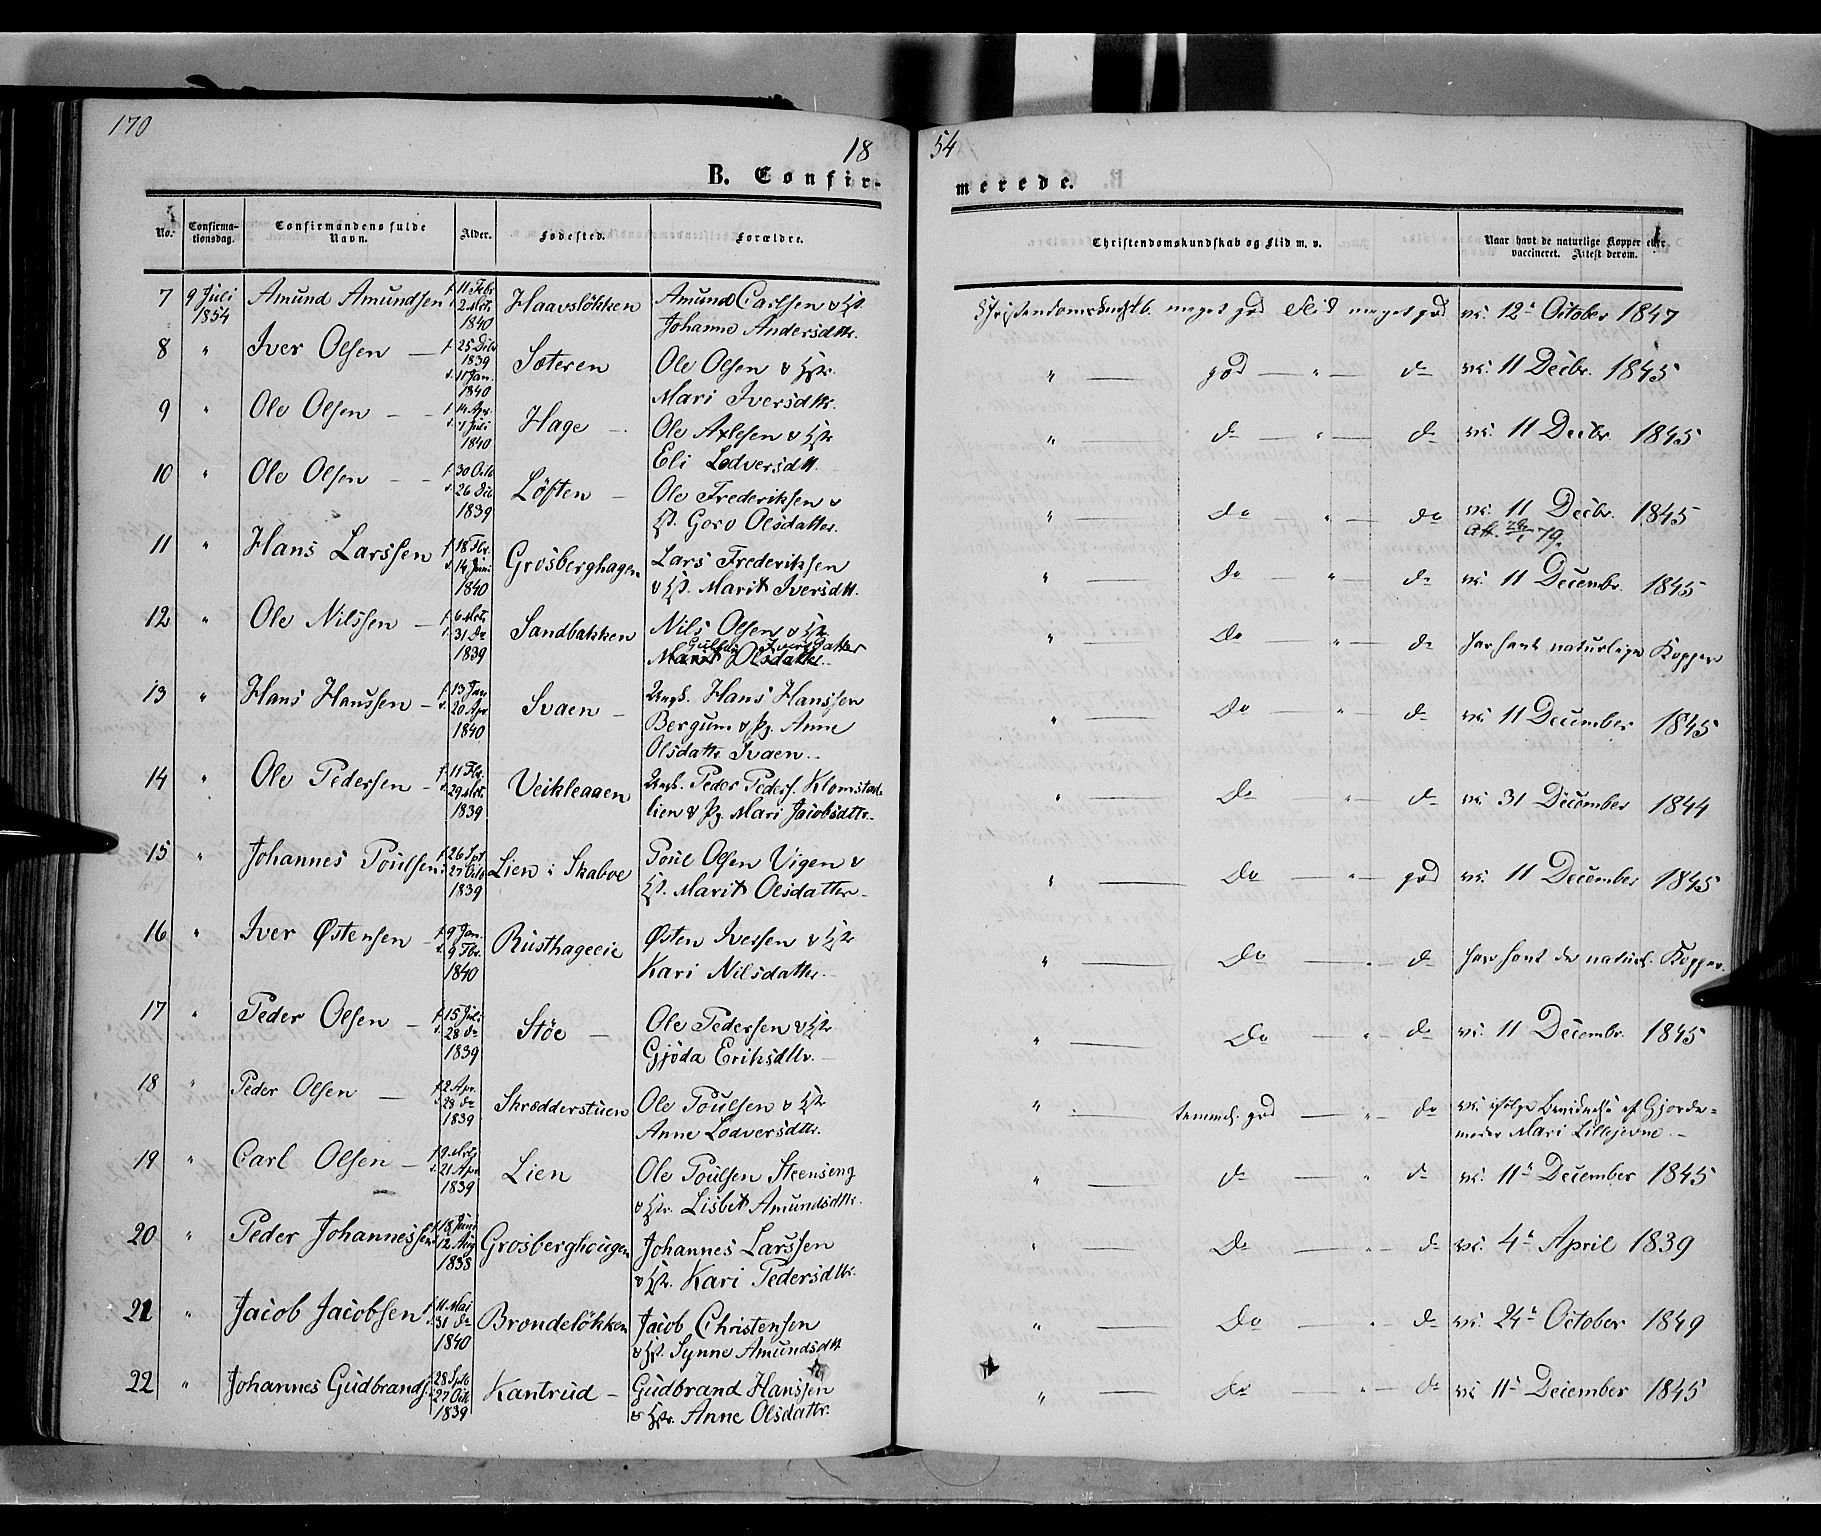 170
18
54
B. Confir-
merede.
No.
Confirma-
tionsdag.
Confirmandens fulde
Navn.
Alder.
Fødested.
Forældre.
Christendomskundskab og Flid m. v.
Naar havt de naturlige Kopper eller
vaccineret. Attest derom.
7 9 Juli 1854 Amund Amundsen f. 11 Febr d. 2 Mrts 1840 Haavsløkken Amund Carlsen & H.
Johanne Andersdttr. Christendomskundskb. meget god Flid meget god vc. 12te October 1847
8 " Iver Olsen — f. 25 Dcbr 1839 d. 11 Jan. 1840 Sæteren Ole Olsen & Hstr.
Mari Iversdttr. " — god — " — do vc. 11 Decbr. 1845
9 " Ole Olsen — f. 14 Apr. d. 7 Juli 1840 Hage — Ole Axlesen & Hstr
Eli Lodversdtt. " — do — " — do vc. 11 Decbr. 1845
10 " Ole Olsen — f. 30 Octb d. 26 Dcb 1839 Løften — Ole Frederiksen &
H. Goro Olsdatter. " — do — " — do vc. 11 Decbr. 1845
Att. 79.
11 " Hans Larssen f. 18 Fbr. d. 14 Juni 1840 Grosberghagen Lars Frederiksen
& H. Marit Iversdtt. " — do — " — do vc. 11 Decembr. 1845
12 " Ole Nilssen — f. 6 Mrts d. 31 do 1839 Sandbakken Nils Olsen & Hstr
Iversdatter
Marit Olsdatter. " — do " — do har havt naturlige Kopper
13 " Hans Hanssen — f. 13 Jan d. 20 Apr 1840 Svaen — Ungk. Hans Hanssen
Bergum & Pg. Anne
Olsdattr. Svaen. " — do — " — do vc. 11 December 1845
14 " Ole Pedersen — f. 11 Fbr. d. 29 Mrt. 1839 Veikleaaen Ungk. Peder Peders. Klomstad-
lien & Pg. Mari Jacobsdttr. " — do " — do vc. 31 December 1844
15 " Johannes Poulsen f. 26 Spt 27 Octb 1839 Lien i Skaboe Poul Olsen Vigen &
H. Marit Olsdatter. " — do — " — god vc. 11 December 1845
16 " Iver Østensen — f. 9 Jan. d. 9 Fbr. 1840 Rusthageeie Østen Iversen & Hstr
Kari Nilsdatter. " do — " — do har havt de naturl. Kopper.
17 " Peder Olsen — f. 15 Juli d. 28 do 1839 Støe — Ole Pedersen & Hstr
Gjøda Eriksdttr. " — do — " — do vc. 11 Decembr. 1845
18 " Peder Olsen — f. 2 Apr. d. 28 do 1839 Skrædderstuen Ole Poulsen & Hstr
Anne Lodversdttr. " — temmel. god — " — do vc. ifølge Beviidnelse af Gjorde-
moder Mari Lillejevne. —
19 " Carl Olsen — f. 9 Mrts d. 21 Apr 1839 Lien Ole Poulsen Steenseng
& Hstr. Lisbet Amundsdttr. " — do — " — do vc. 11te December 1845
20 " Peder Johannessen f. 18 Juni 12 Aug 1838 Grosberghougen Johannes Larssen
& Hstr. Kari Pedersdttr. " — do — " — do vc. 4de April 1839
21 " Jacob Jacobsen f. 11 Mai d. 31 do 1840 Brændeløkken Jacob Christensen
& H. Synne Amundsdtt " — do — " — do vc. 24de October 1849
22 " Johannes Gudbrands. 28 Sptb 27 Oct 1839 Kantrud — Gudbrand Hanssen
& Hstr. Anne Olsdattr. " — do — " — do vc 11te December 1845